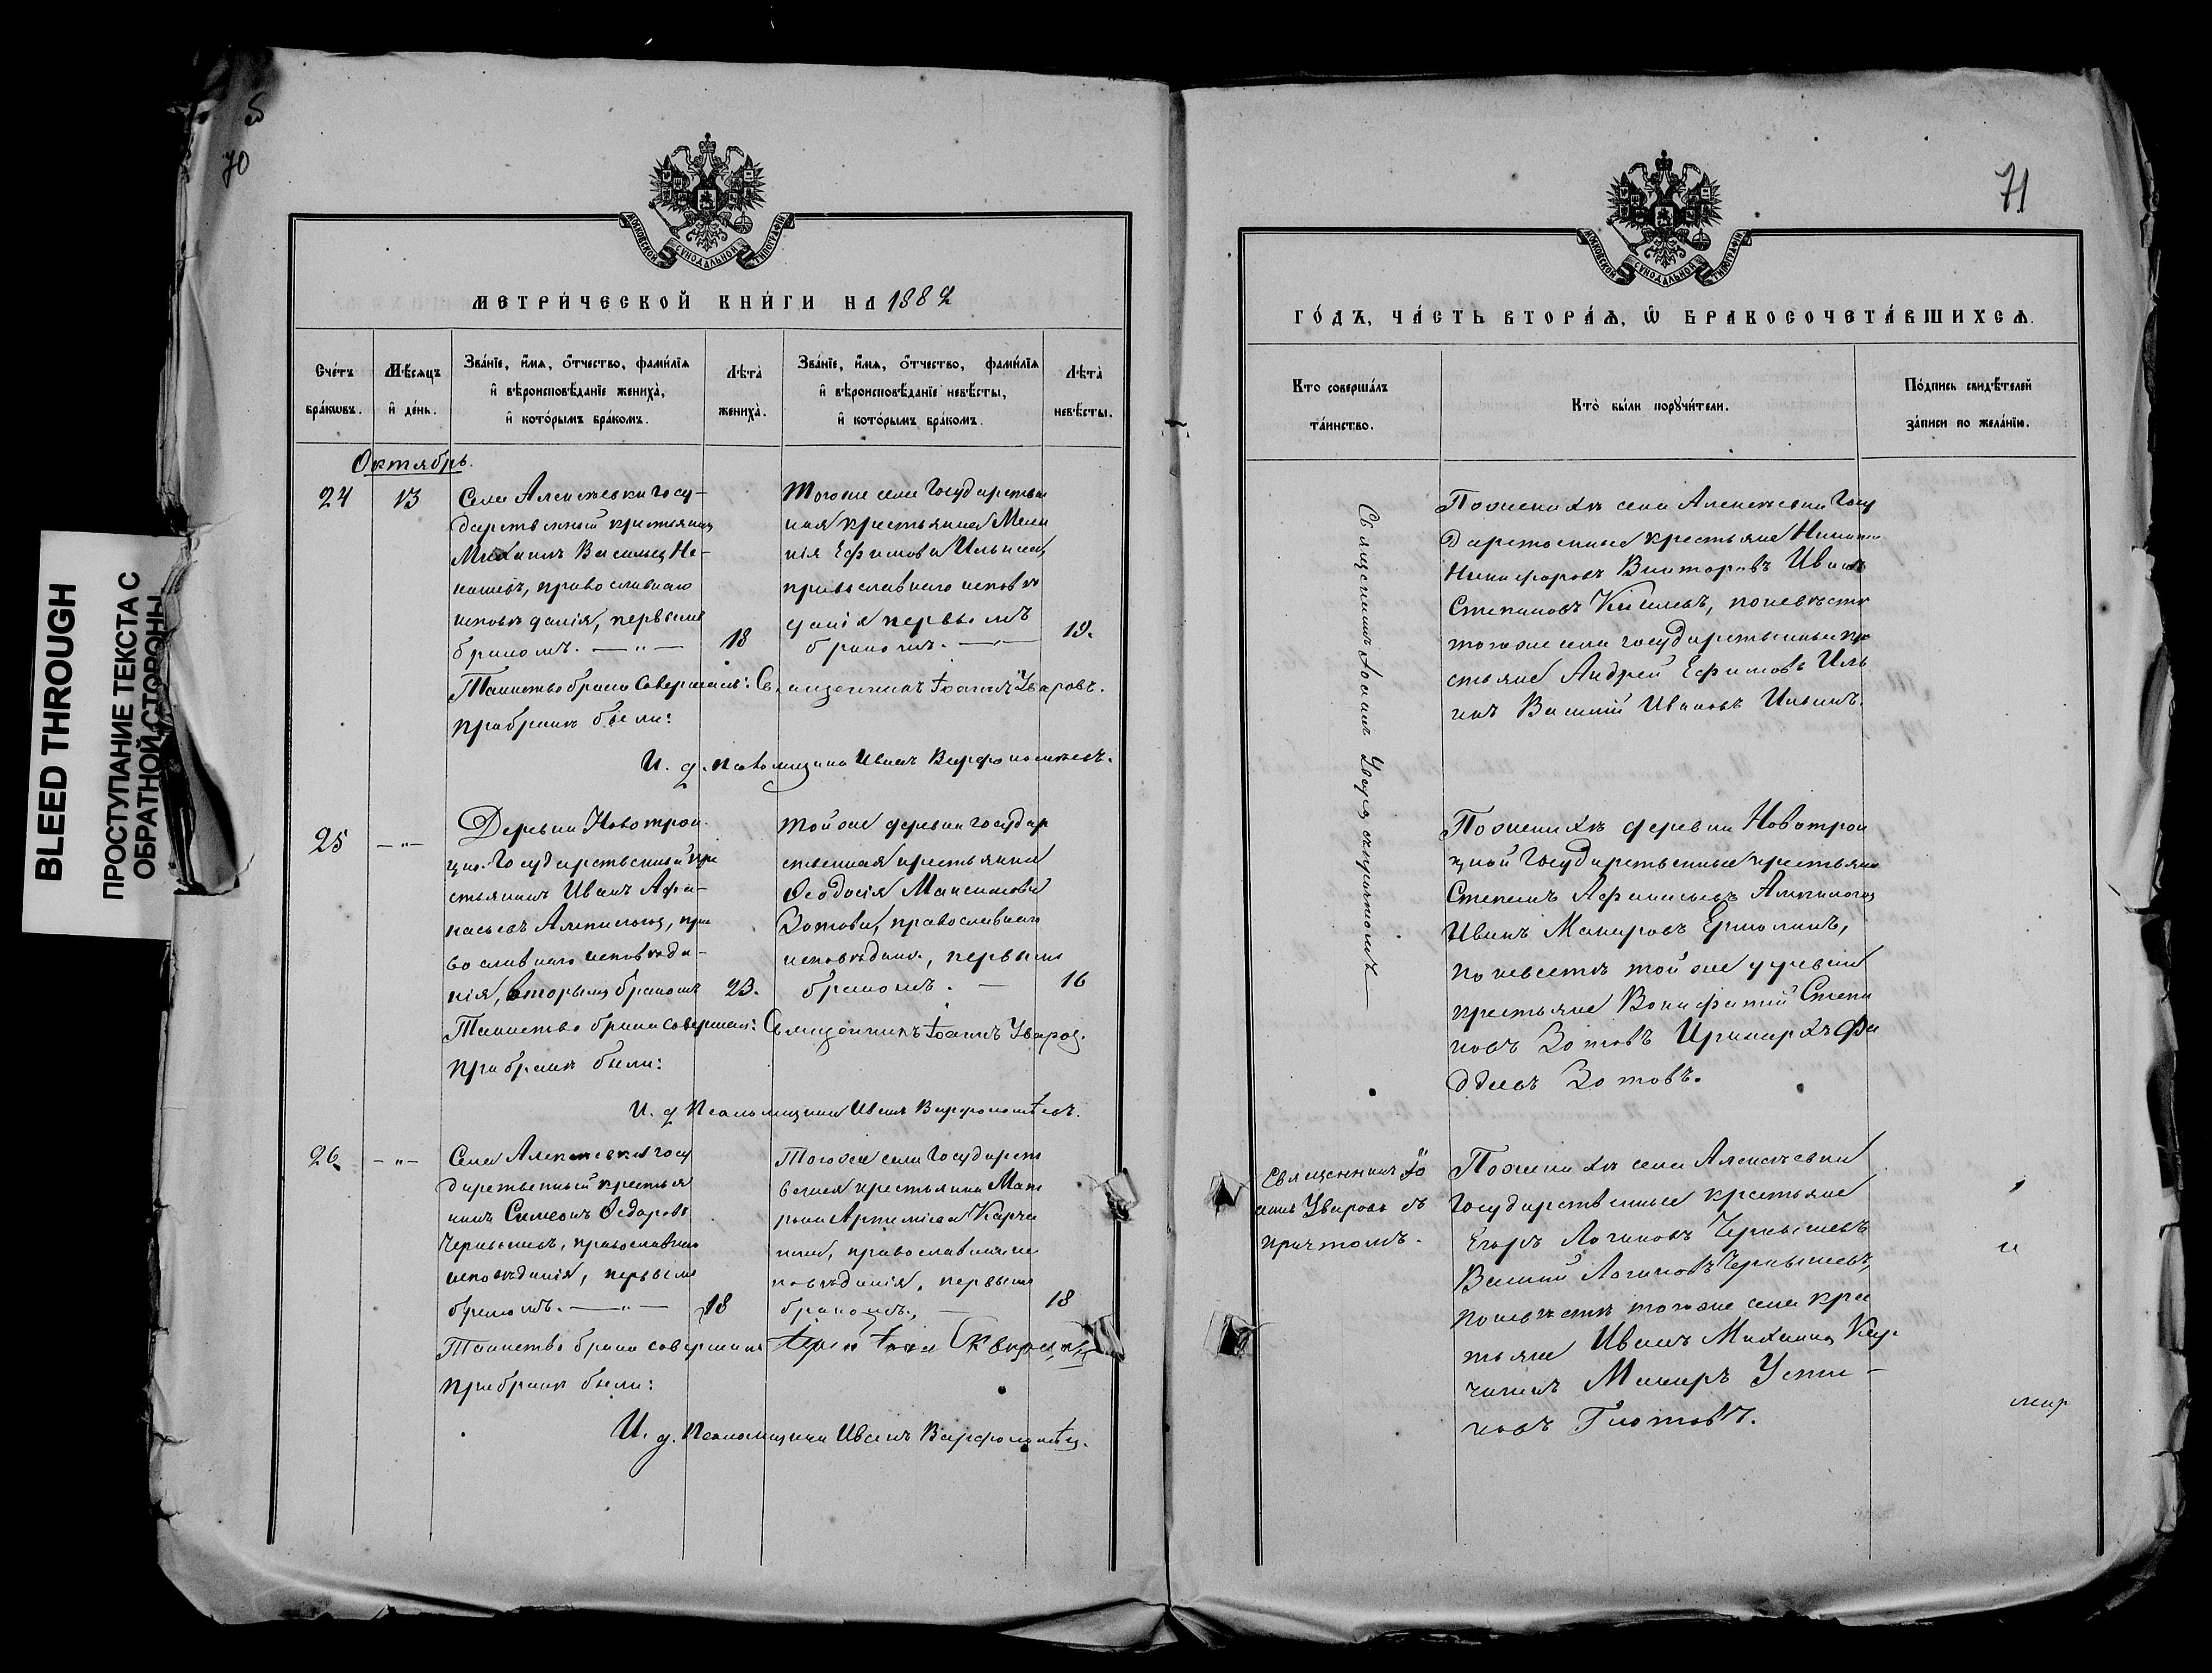 BLEED THROUGH
ПРОСТУПАНИЕ ТЕКСТА С
ОБРАТНОЙ СТОРОНЫ
70
МОСКОВСКОЙ СѴНОДАЛЬНОЙ ТИПОГРАФІИ
МЕТРИ́ЧЕСКОЙ КНИ́ГИ НА 1882
Сче́тъ
бра́кѡвъ.
Мѣ́сяцъ
и҆ де́нь.
Зва́нїе, и҆́мѧ, ѻ҆́тчество, фами́лїѧ
и҆ вѣроисповѣ́данїе жениха̀,
и҆ кото́рымъ бра́комъ.
Лѣта̀
жениха̀.
Зва́нїе, и҆́мѧ, ѻ҆́тчество, фами́лїѧ
и҆ вѣроисповѣ́данїе невѣ́сты,
и҆ кото́рымъ бра́комъ.
Лѣта̀
невѣ́сты.
Октябрь.
24
13
Села Алексѣевки Госу-
дарственный крестьянинъ
Михаилъ Васильевъ
православнаго
исповѣданія, первымъ
бракомъ. — " —
18
Тогоже села Государствен
ная крестьянка Мела
нія Ефимова Ильина,
православнаго исповѣ
данія первымъ
бракомъ. — " —
19.
Таинство брака совершалъ: Священникъ Іоаннъ Уваровъ.
при бракѣ были:
И. д. Псаломщика Иванъ Варфоломѣевъ.
25
— " —
Деревни Новотрои
цко. Государственный кре
стьянинъ Иванъ Афа-
насьевъ пра
вославнаго исповѣда-
нія, вторымъ бракомъ
23.
Той же деревни государ
ственная крестьянка
Ѳеодосія Максимова
Зотова, православнаго
исповѣданія, первымъ
бракомъ. —
16
Таинство брака совершалъ: Священникъ Іоаннъ Уваровъ.
при бракѣ были:
И. д. Псаломщика Иванъ Варфоломѣевъ.
26
— " —
Села Алексѣевки госу
дарственный крестья
нинъ Симеонъ Ѳедоровъ
Чернышевъ, православнаго
исповѣданія, первымъ
бракомъ. — " —
18
Тогоже села Государст
венная крестьянка Мат
рона Артемьева
православнаго ис
повѣданія, первымъ
бракомъ. —
18
Таинство брака совершалъ Іерей Іоаннъ
при бракѣ были:
И. д. Псаломщика Иванъ Варфоломѣевъ.
71
МОСКОВСКОЙ СѴНОДАЛЬНОЙ ТИПОГРАФІИ
ГО́ДЪ, ЧА́СТЬ ВТОРА́Ѧ, Ѽ БРАКОСОЧЕТА́ВШИХСѦ.
Кто соверша́лъ
та́инство.
Кто̀ бы́ли порꙋчи́тели.
По́дпись свидѣ́телей
за́писи по жела́нїю.
Священникъ Іоаннъ Уваровъ съ причтомъ —
По женихѣ села Алексѣевки Госу
дарственные крестьяне
Никифоровъ Викторовъ Иванъ
Степановъ Киселевъ, по невѣстѣ
тогоже села государственные кре
стьяне Андрей Ефимовъ Иль
инъ Василій Ивановъ Ильинъ.
По женихѣ деревни Новотрои
цкой Государственные крестьяне
Степанъ Афанасьевъ
Иванъ Макаровъ Ермолинъ,
по невестѣ той же деревни
крестьяне Вонифатій Степа
новъ Зотовъ Иринархъ Фа
ддеевъ Зотовъ.
Священникъ Іо
аннъ Уваровъ съ
причтомъ.
По женихѣ села Алексѣевки
Государственные крестьяне
Егоръ Логиновъ Чернышевъ
Василій Логиновъ Чернышевъ,
по невѣстѣ тогоже села крес
тьяне Иванъ Михаиловъ Кар-
Макаръ Усти-
новъ Глотовъ.